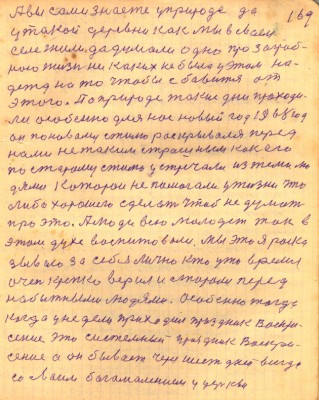 169
А вы сами знаете у природе да
у такой деревни как мы в своем
селе жили, да думали одно про загроб-
ною жизнь ни каких не было у этом на-
дежд на то чтобы сбавится от
этого. По природе такие дни проходи-
ли особенно для нас новый год 1968 год
он по новому стилю раскрывался перед
нами не таким страшным как его
по старому стилю устречали из теми лю
дями которой не помогали у жизни что
либо хорошего сделать чтоб не думат
про это. А люди всю молодеж так в
этом духе воспитовали. Мы это я расказ
зываю за себя лично кто уто время
очен крепко верил и старом перед
набитными людями. Особенно тогда
когда у неделю приходил праздник Воскре-
сение это системный праздник Воскре-
сение а он бывает через шест дней всегда
со своим богомалением у церкви